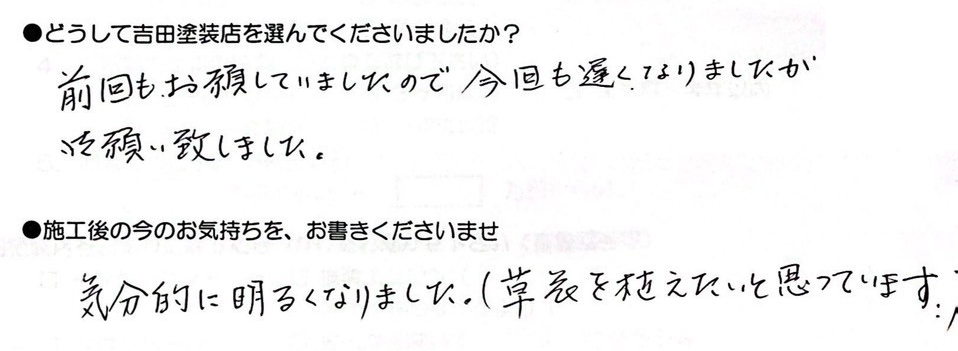 ●どうして吉田塗装店を選んでくださいましたか？
前回もお願していましたので今回も遅くなりましたが
お願い致しました。
●施工後の今のお気持ちを、お書きくださいませ
気分的に明るくなりました。(草花を植えたいと思っています。)